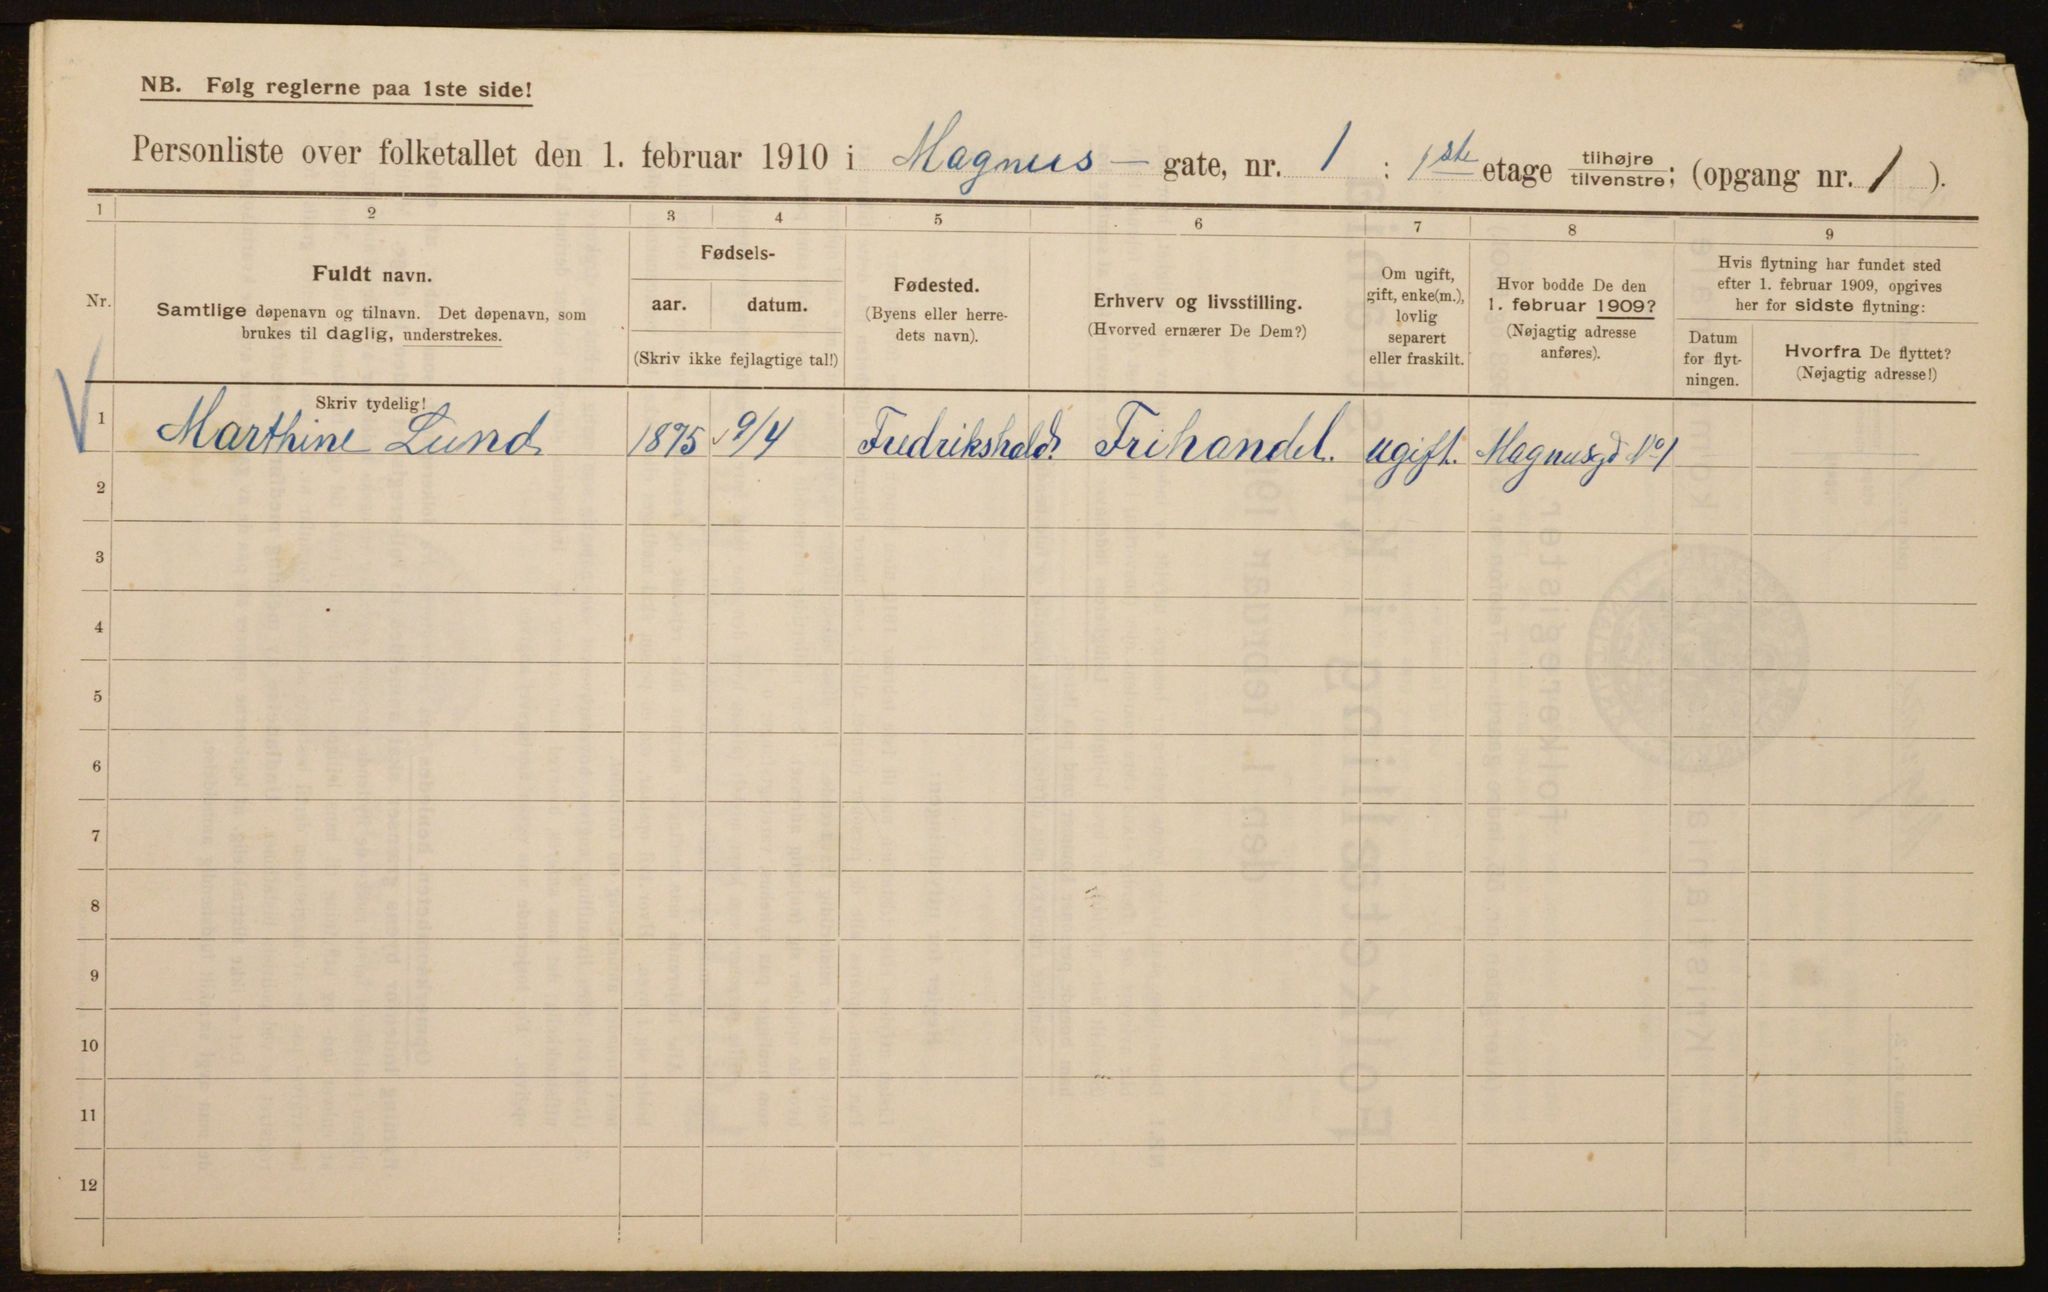 NB. Følg reglerne paa 1ste side!
Personliste over folketallet den 1. februar 1910 i Magnus — gate, nr. 1 : 1ste etage tilhøjre/tilvenstre; (opgang nr. 1 ).
1 2 3 4 5 6 7 8 9
Nr.
Fuldt navn.
Samtlige døpenavn og tilnavn. Det døpenavn, som
brukes til daglig, understrekes.
Skriv tydelig!
Fødsels-
aar. datum.
(Skriv ikke fejlagtige tal!)
Fødested.
(Byens eller herre-
dets navn).
Erhverv og livsstilling.
(Hvorved ernærer De Dem?)
Om ugift,
gift, enke(m.),
lovlig
separert
eller fraskilt.
Hvor bodde De den
1. februar 1909?
(Nøjagtig adresse
anføres).
Hvis flytning har fundet sted
efter 1. februar 1909, opgives
her for sidste flytning:
Datum
for flyt-
ningen.
Hvorfra De flyttet?
(Nøjagtig adresse!)
1 Marthine Lund 1875 9/4 Fredrikshald. Frihandel. ugift. Magnusgd No 1
2
3
4
5
6
7
8
9
10
11
12